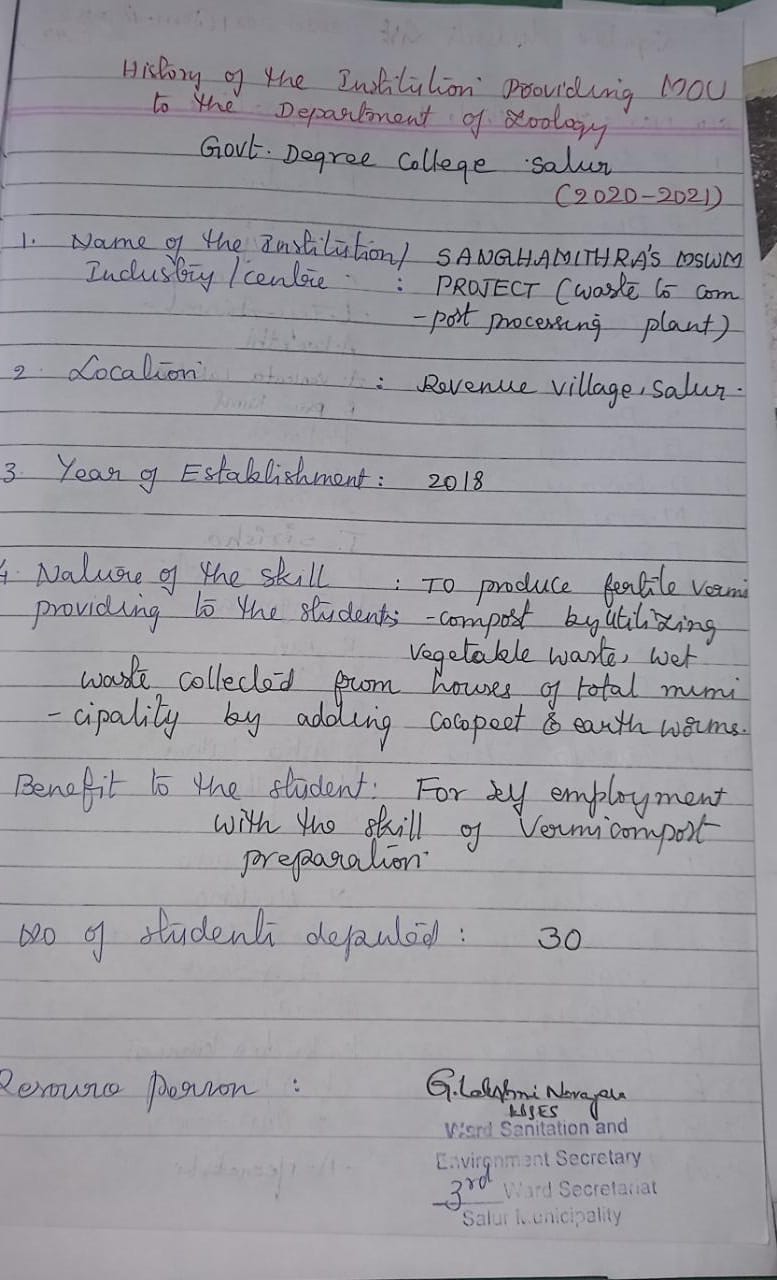 History of the Institution Providing MOU
to the Department of Zoology
Govt. Degree College Salur
(2020-2021)
1. Name of the Institution/ SANGHAMITHRA'S MSWM
Industry / centre : PROJECT (waste to com
-post processing plant)
2. Location : Revenue village, Salur.
3. Year of Establishment : 2018
4. Nature of the skill : To produce fertile vermi
providing to the students -compost by utilizing
vegetable waste, wet
waste collected from houses of total muni
-cipality by adding cocopeet & earth worms.
Benefit to the student : For self employment
with the skill of Vermicompost
preparation.
No of students deputed : 30
Resource person : G. Lakshmi Narayana
Ward Sanitation and
Environment Secretary
3rd Ward Secretariat
Salur Municipality